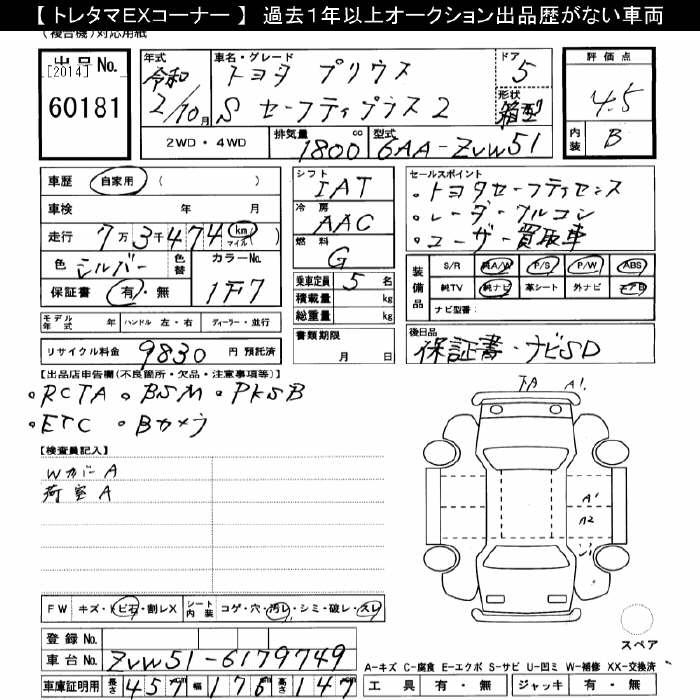 【 トレタマEXコーナー 】 過去1年以上オークション出品歴がない車両
(複合機) 対応用紙
出品 No.
[2014]
60181
年式 令和 2/10月
車名・グレード トヨタ プリウス
S セーフティプラス2
ドア 5
形状 箱型
評価点 4.5
内装 B
2WD・4WD
排気量 1800 cc
型式 6AA-ZVW51
車歴 自家用 ( )
車検 年 月
走行 7万3千474 km マイル ( )
色 シルバー 色替 カラーNo. 1F7
保証書 有・無
モデル年式 年 ハンドル 左・右 ディーラー・並行
リサイクル料金 9830 円 預託済
シフト IAT
冷房 AAC
燃料 G
乗車定員 5 名
積載量 kg
総重量 kg
書類期限 月 日
セールスポイント
・トヨタセーフティセンス
・レーダークルコン
・ユーザー買取車
装備品 S/R 純A/W P/S P/W ABS
純TV 純ナビ 革シート 外ナビ エアB
ナビ型番:
後日品
保証書・ナビSD
【出品店申告欄(不良箇所・欠品・注意事項等)】
・RCTA ・BSM ・PKSB
・ETC ・Bカメラ
【検査員記入】
Wカバー A
荷室 A
A1
A1
A2
FW キズ・トビ石・割レX シート内装 コゲ・穴・汚レ・シミ・破レ・スレ
登録 No.
車台 No. ZVW51-6179749
車庫証明用 長さ 457 幅 176 高さ 147
スペア
A-キズ C-腐食 E-エクボ S-サビ U-凹ミ W-補修 XX-交換済
工具 有・無 ジャッキ 有・無